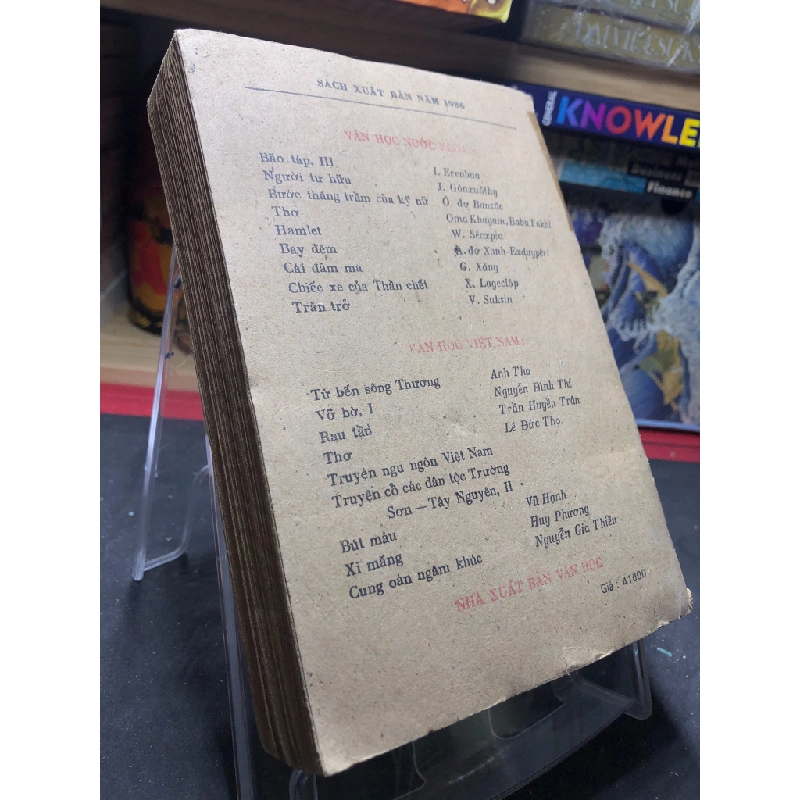 SÁCH XUẤT BẢN NĂM 1986
VĂN HỌC NƯỚC
Bão táp, III I. Erenbua
Người tư hữu J. Gônxuôthy
Bước thăng trầm của kỹ nữ Ô. đơ Banzắc
Thơ Oma Khayam, Baba Takhi
Hamlet W. Sêcxpia
Bay đêm A. đơ Xanh-Exduypêri
Cái đầm ma G. Xăng
Chiếc xe của Thần chết X. Lageclôp
Trăn trở V. Suksin
VĂN HỌC VIỆT NAM:
Từ bến sông Thương Anh Thơ
Vỡ bờ, I Nguyễn Đình Thi
Rau tần Trần Huyền Trân
Thơ Lê Đức Thọ
Truyện ngụ ngôn Việt Nam
Truyện cổ các dân tộc Trường
Sơn — Tây Nguyên, II
Bút máu Vũ Hạnh
Xi măng Huy Phương
Cung oán ngâm khúc Nguyễn Gia Thiều
NHÀ XUẤT BẢN VĂN HỌC
Giá: 41800
GENERAL
KNOWLE
Finance